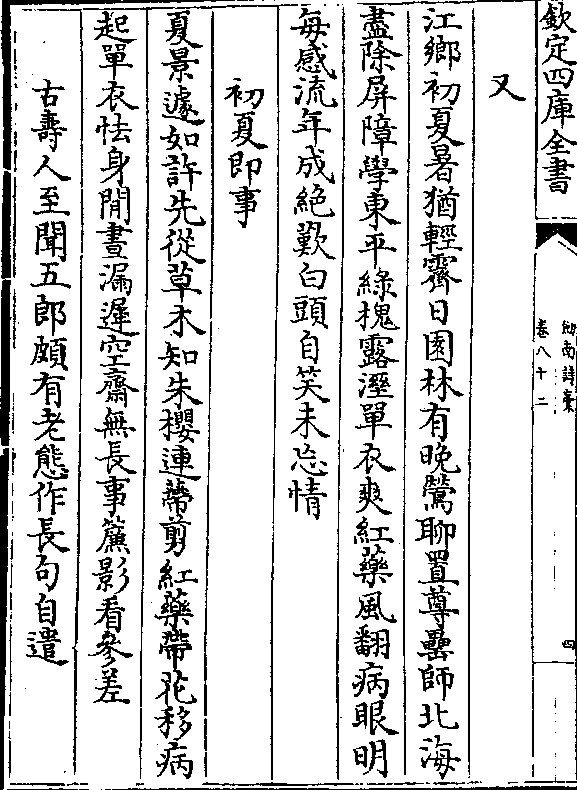 欽定四庫全書
劍南詩稾
卷八十二
四
又
江鄉初夏暑猶輕霽日園林有晚鶯聊置尊罍師北海
盡除屏障學東平綠槐露溼單衣爽紅藥風翻病眼明
每感流年成絶歎白頭自笑未忘情
初夏即事
夏景遽如許先從草木知朱櫻連蔕剪紅藥帶花移病
起單衣怯身閒晝漏遲空齋無長事簾影看參差
古壽人至聞五郎頗有老態作長句自遣